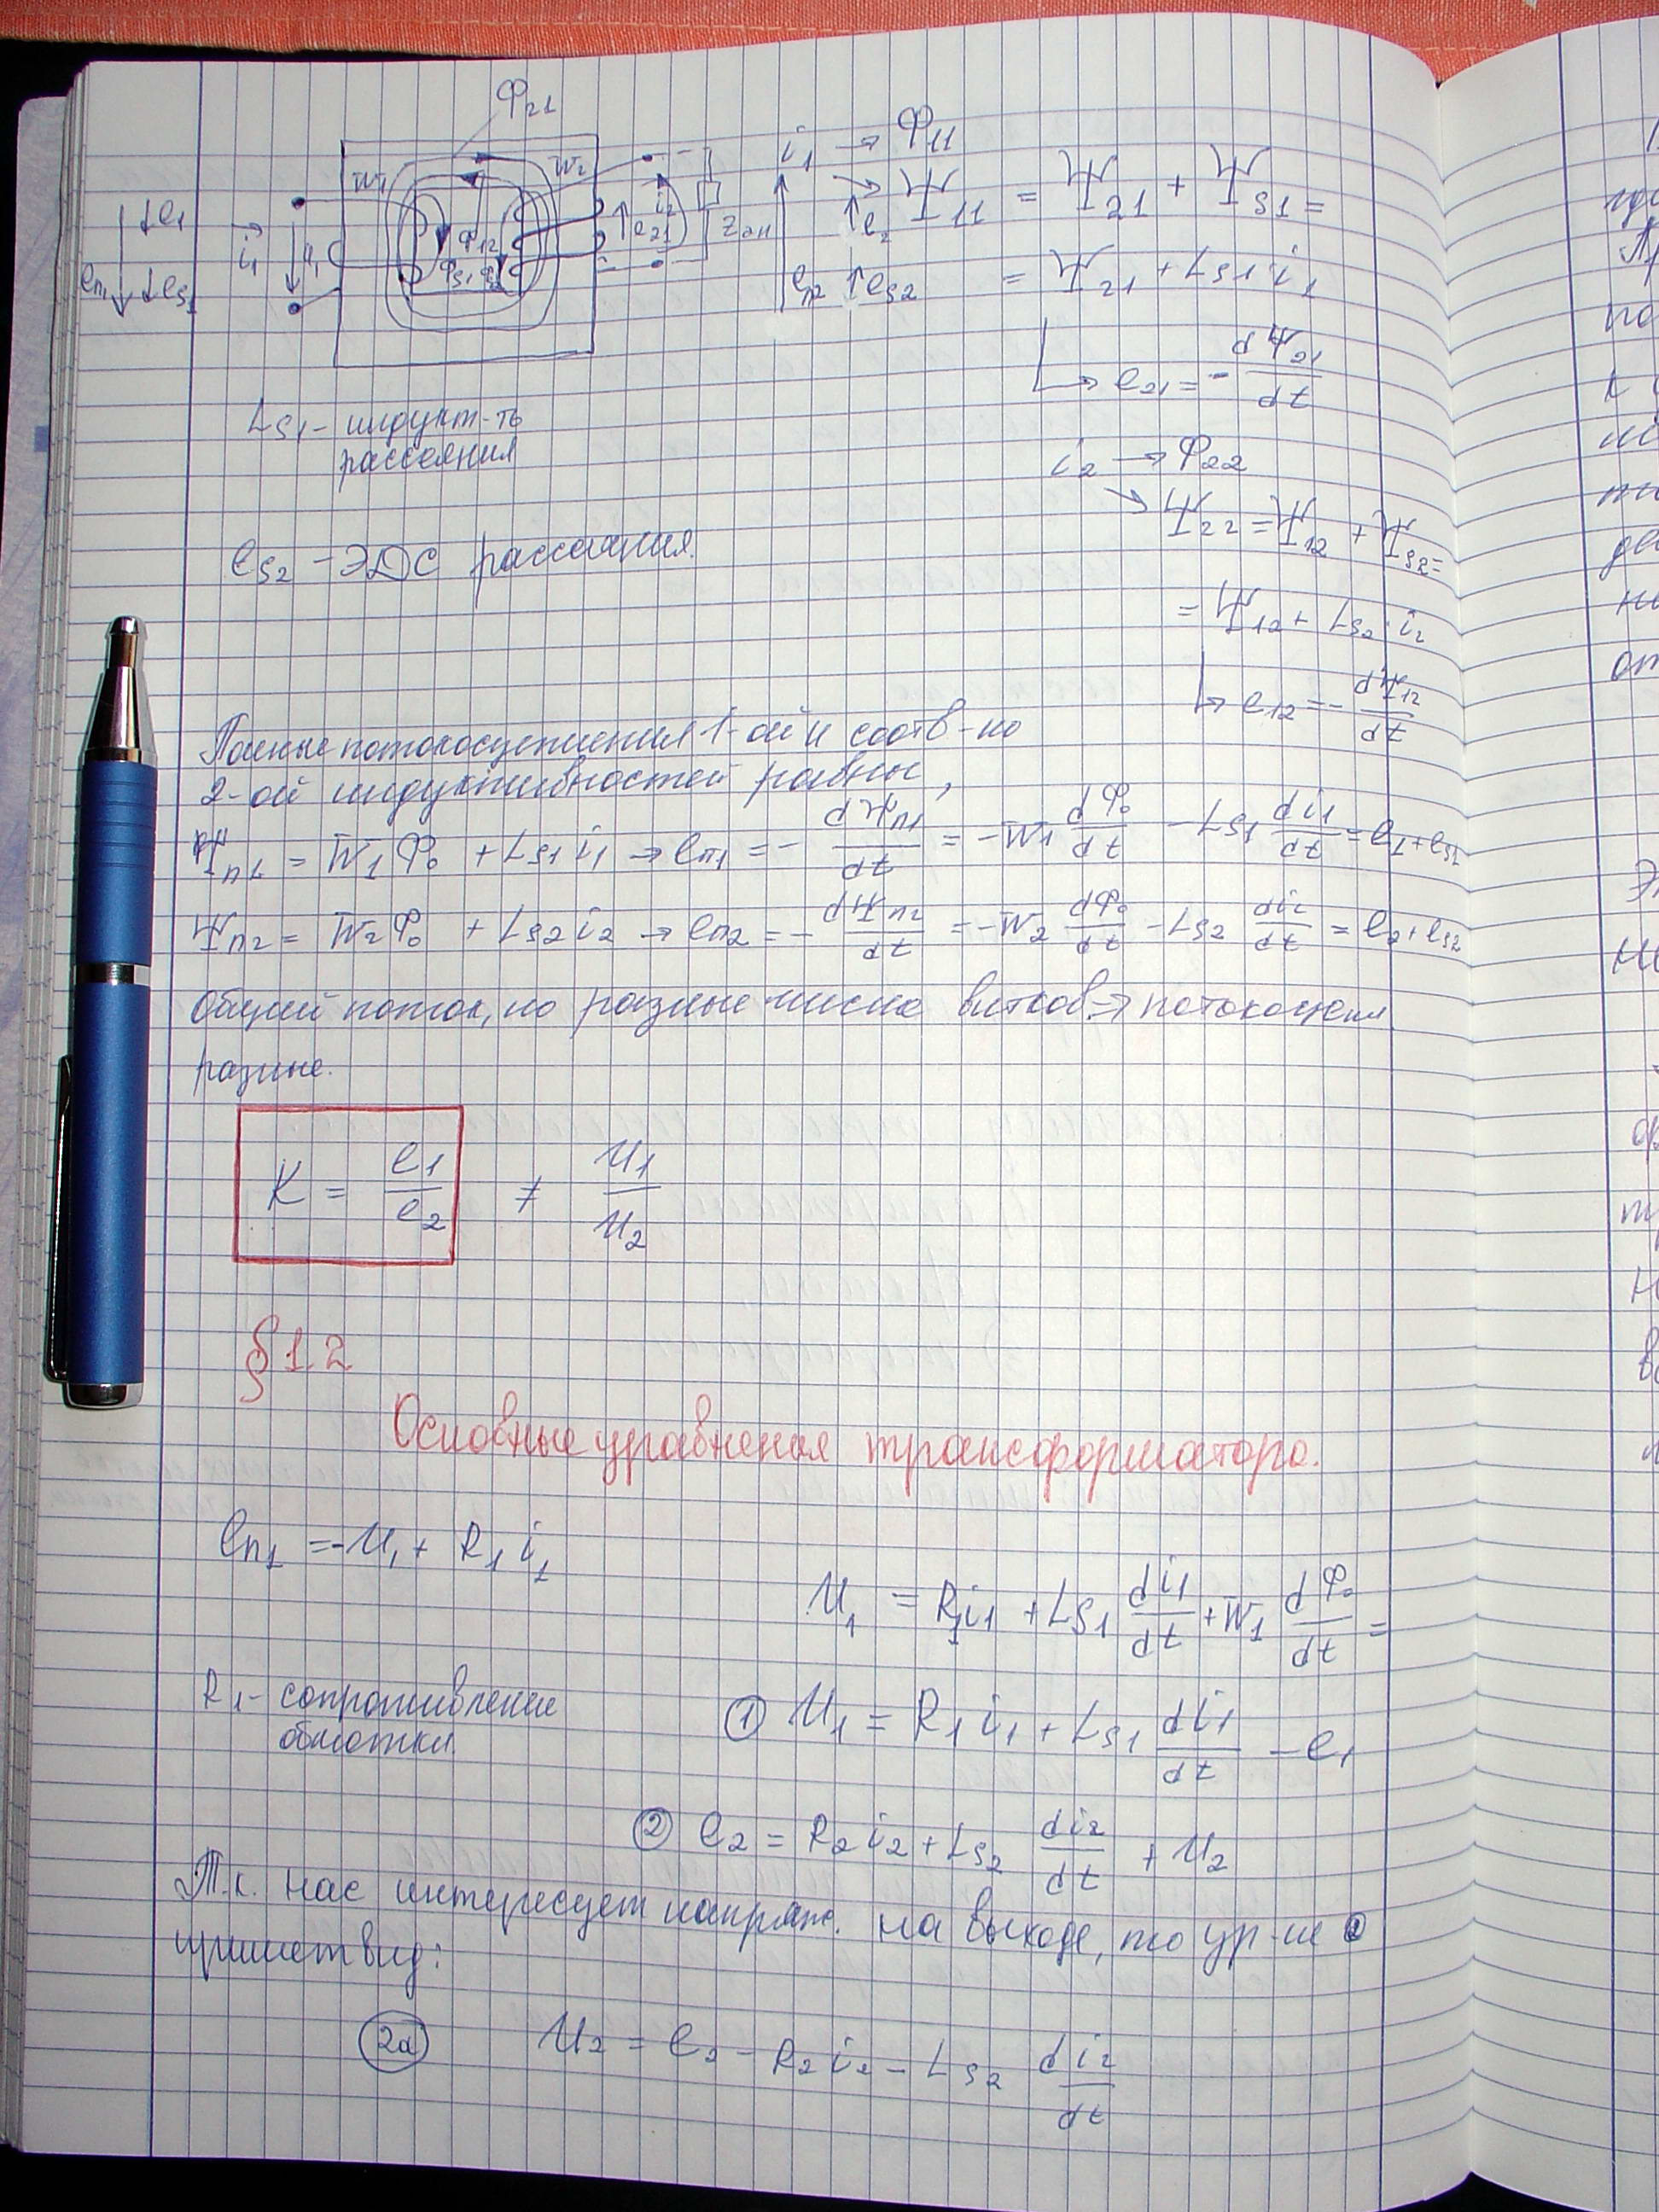 Φ₂₁
i₁ → Φ₁₁
w₁ w₂
→ Ψ₁₁ = Ψ₂₁ + Ψs1 =
e₁ i₁ u₁ Φ₁₂ Φs1 e₂₁ i₂ e₂
eп1 es1 eп2 es2
= Ψ₂₁ + Ls1 i₁
→ e₂₁ = - dΨ₂₁/dt
Ls1 - индукт-ть
рассеяния
i₂ → Φ₂₂
→ Ψ₂₂ = Ψ₁₂ + Ψs2 =
es2 - ЭДС рассеяния.
= Ψ₁₂ + Ls2 · i₂
→ e₁₂ = - dΨ₁₂/dt
Полные потокосцепления 1-ой и соотв-но
2-ой индуктивностей равны,
Ψп1 = w₁Φ₀ + Ls1 i₁ → eп1 = - dΨп1/dt = -w₁ dΦ₀/dt - Ls1 di₁/dt = e₁ + es1
Ψп2 = w₂Φ₀ + Ls2 i₂ → eп2 = - dΨп2/dt = -w₂ dΦ₀/dt - Ls2 di₂/dt = e₂ + es2
Общий поток, но разные числа витков → потокосцепл
разные.
K = e₁/e₂ ≠ u₁/u₂
§ 1.2
Основные уравнения трансформатора.
eп1 = -u₁ + R₁ i₁
u₁ = R₁i₁ + Ls1 di₁/dt + w₁ dΦ₀/dt =
R₁ - сопротивление
обмотки.
① u₁ = R₁ i₁ + Ls1 di₁/dt - e₁
② e₂ = R₂ i₂ + Ls2 di₂/dt + u₂
Т.к. нас интересует напряж. на выходе, то ур-ие ②
примет вид:
2a u₂ = e₂ - R₂ i₂ - Ls2 di₂/dt